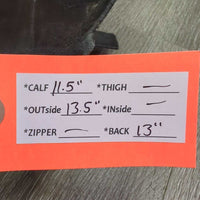 *CALF 11.5" *THIGH —
*OUTside 13.5" *INside —
*ZIPPER — *BACK 13"